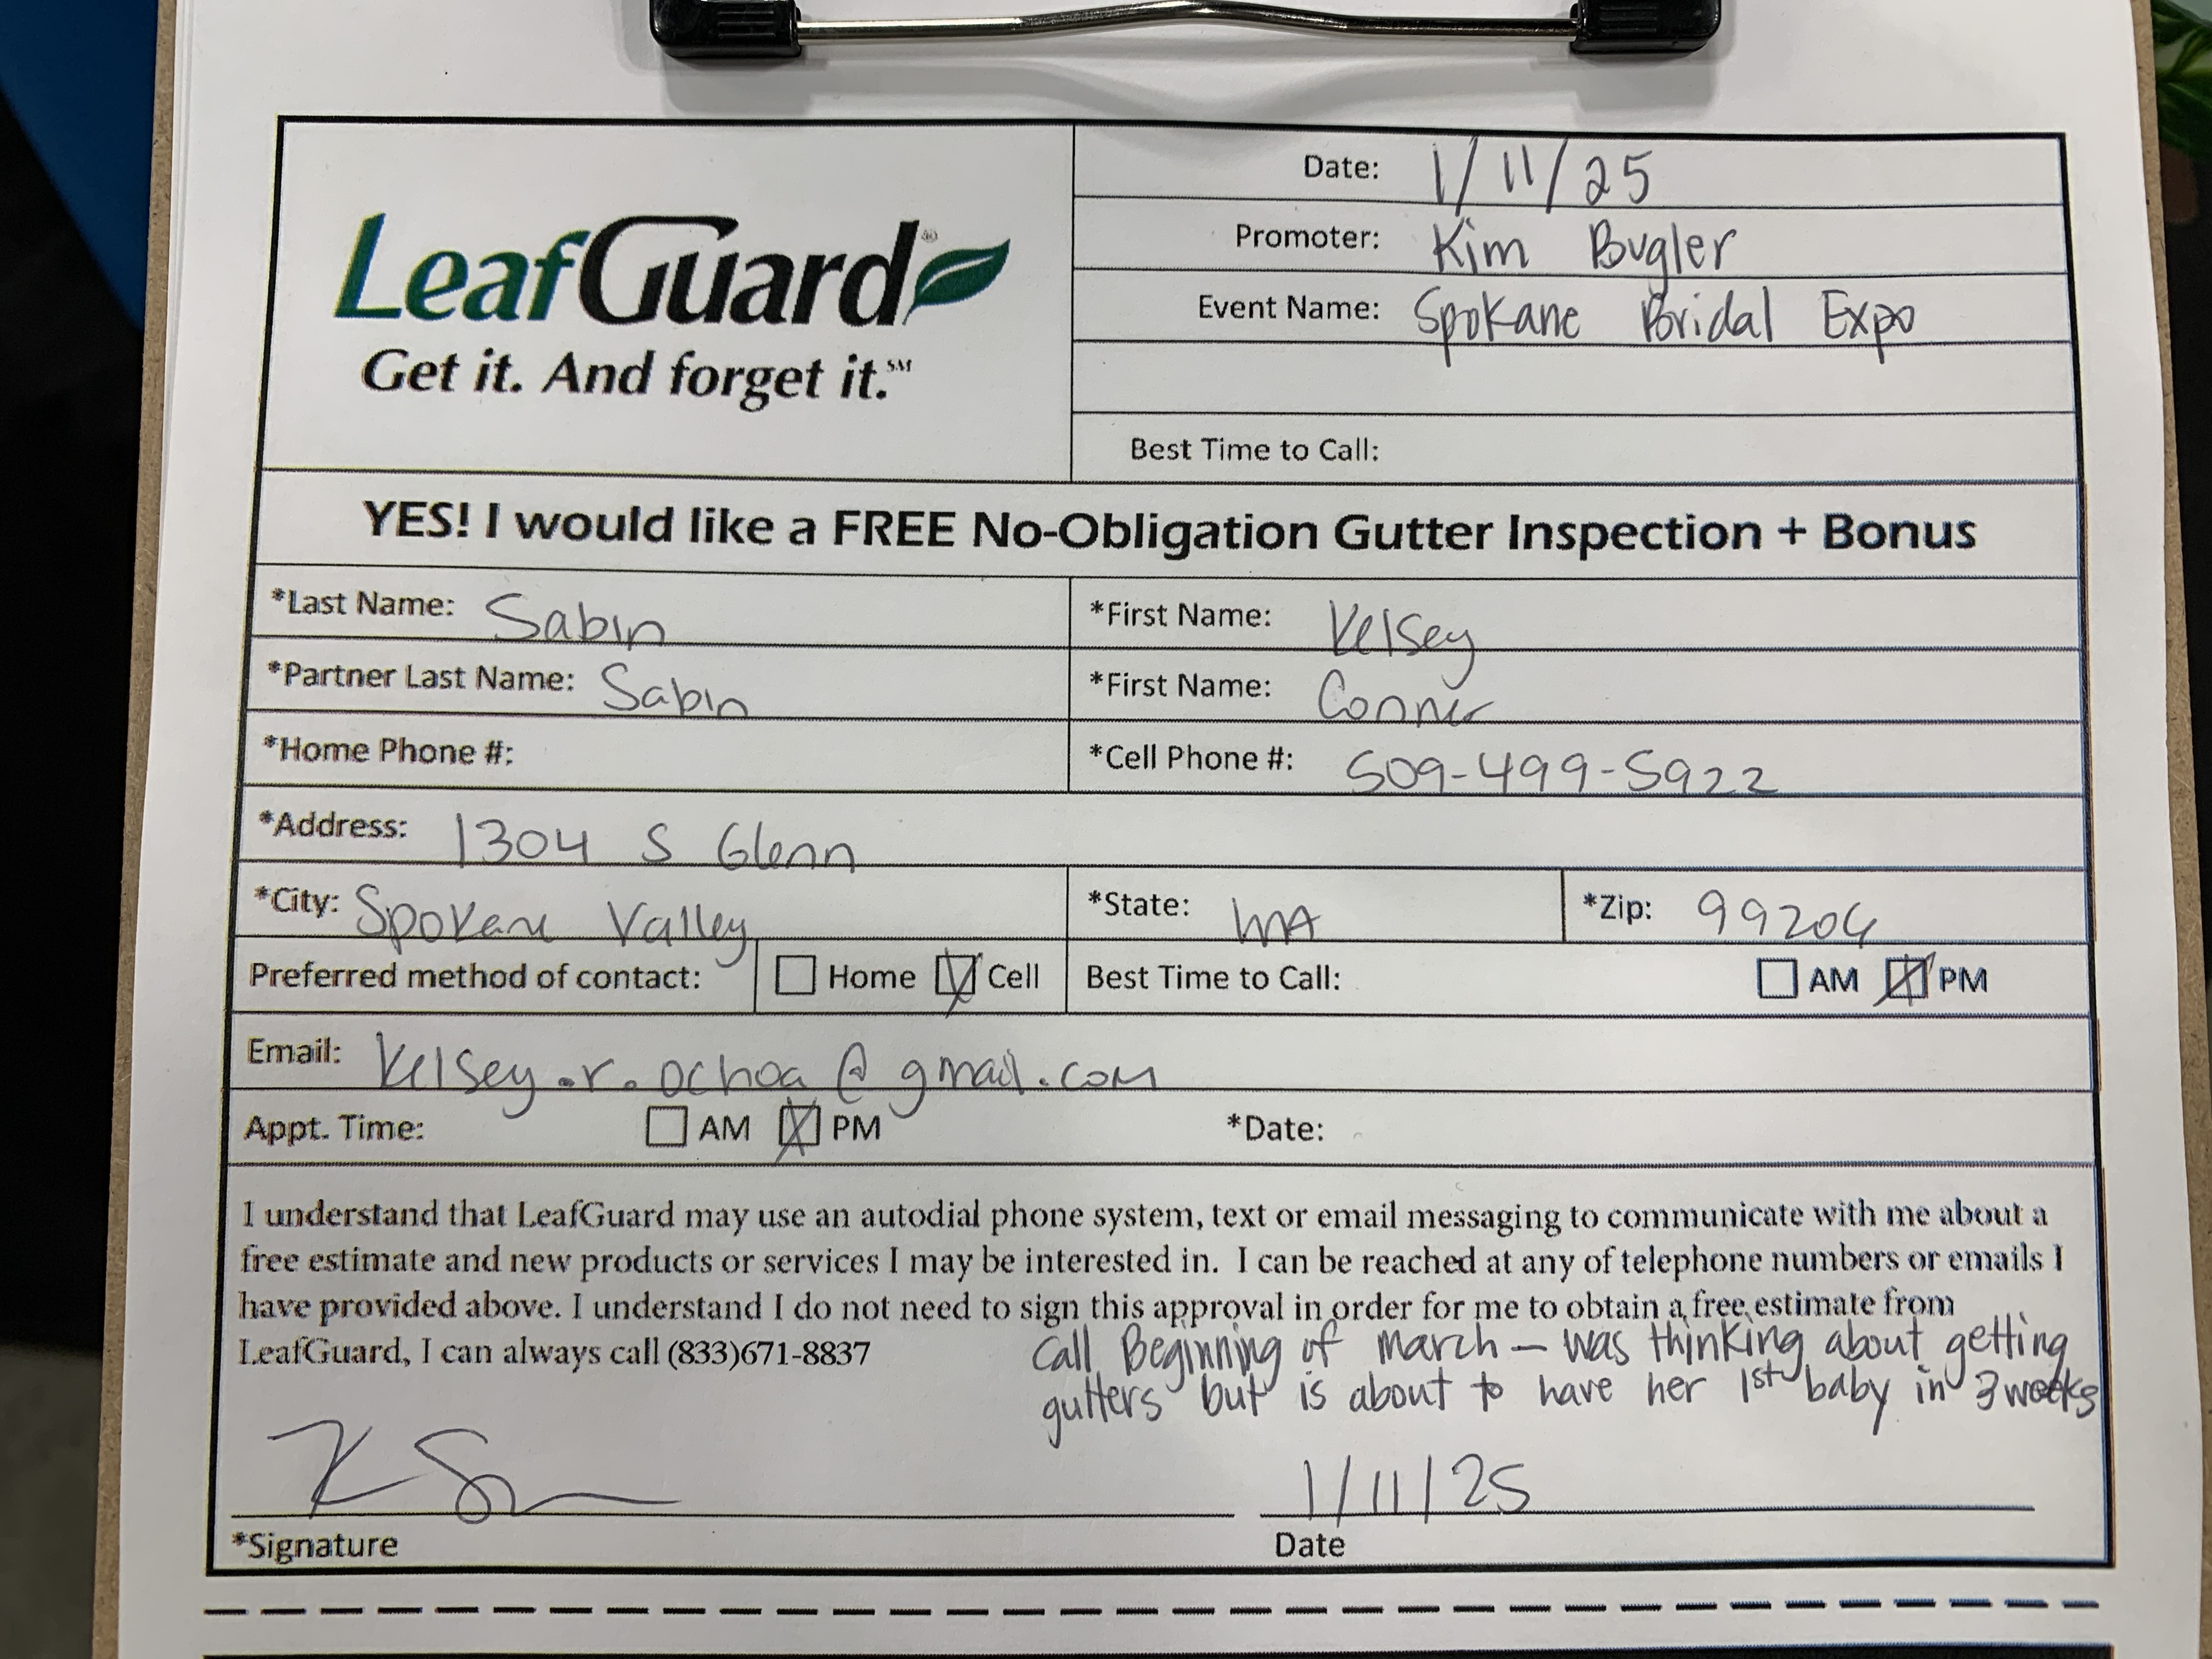 LeafGuard®
Get it. And forget it.℠
Date: 1/11/25
Promoter: Kim Bugler
Event Name: Spokane Bridal Expo
Best Time to Call:
YES! I would like a FREE No-Obligation Gutter Inspection + Bonus
*Last Name: Sabin *First Name: Kelsey
*Partner Last Name: Sabin *First Name: Conner
*Home Phone #: *Cell Phone #: 509-499-5922
*Address: 1304 S Glenn
*City: Spokane Valley *State: WA *Zip: 99204
Preferred method of contact: Home Cell Best Time to Call: AM PM
Email: Kelsey.r.ochoa@gmail.com
Appt. Time: AM PM *Date:
I understand that LeafGuard may use an autodial phone system, text or email messaging to communicate with me about a
free estimate and new products or services I may be interested in. I can be reached at any of telephone numbers or emails I
have provided above. I understand I do not need to sign this approval in order for me to obtain a free estimate from
LeafGuard, I can always call (833)671-8837
Call Beginning of march - was thinking about getting
gutters but is about to have her 1st baby in 3 weeks
1/11/25
*Signature Date